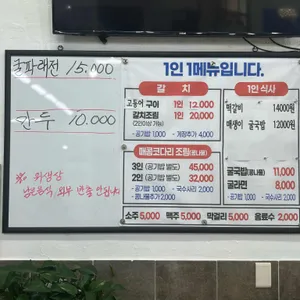 굴파래전 15.000
만두 10.000
※ 위생상
남은음식 외부 반출 안됩니다
1인 1메뉴입니다.
갈 치
고등어 구이 1인 12,000
갈치조림 1인 20,000
(2인이상 가능)
·공기밥 1,000 ·계장추가 4,000
매콤코다리 조림(콩나물)
3인 (공기밥 별도) 45,000
2인 (공기밥 별도) 32,000
·공기밥 1,000 ·국수사리 2,000
·콩나물추가 2,000
1인 식사
떡갈비 14000원
매생이 굴국밥 12000원
굴국밥(콩나물) 11,000
굴라면 8,000
·공기밥 1,000 ·국수사리 2,000
소주 5,000 맥주 5,000 막걸리 5,000 음료수 2,000